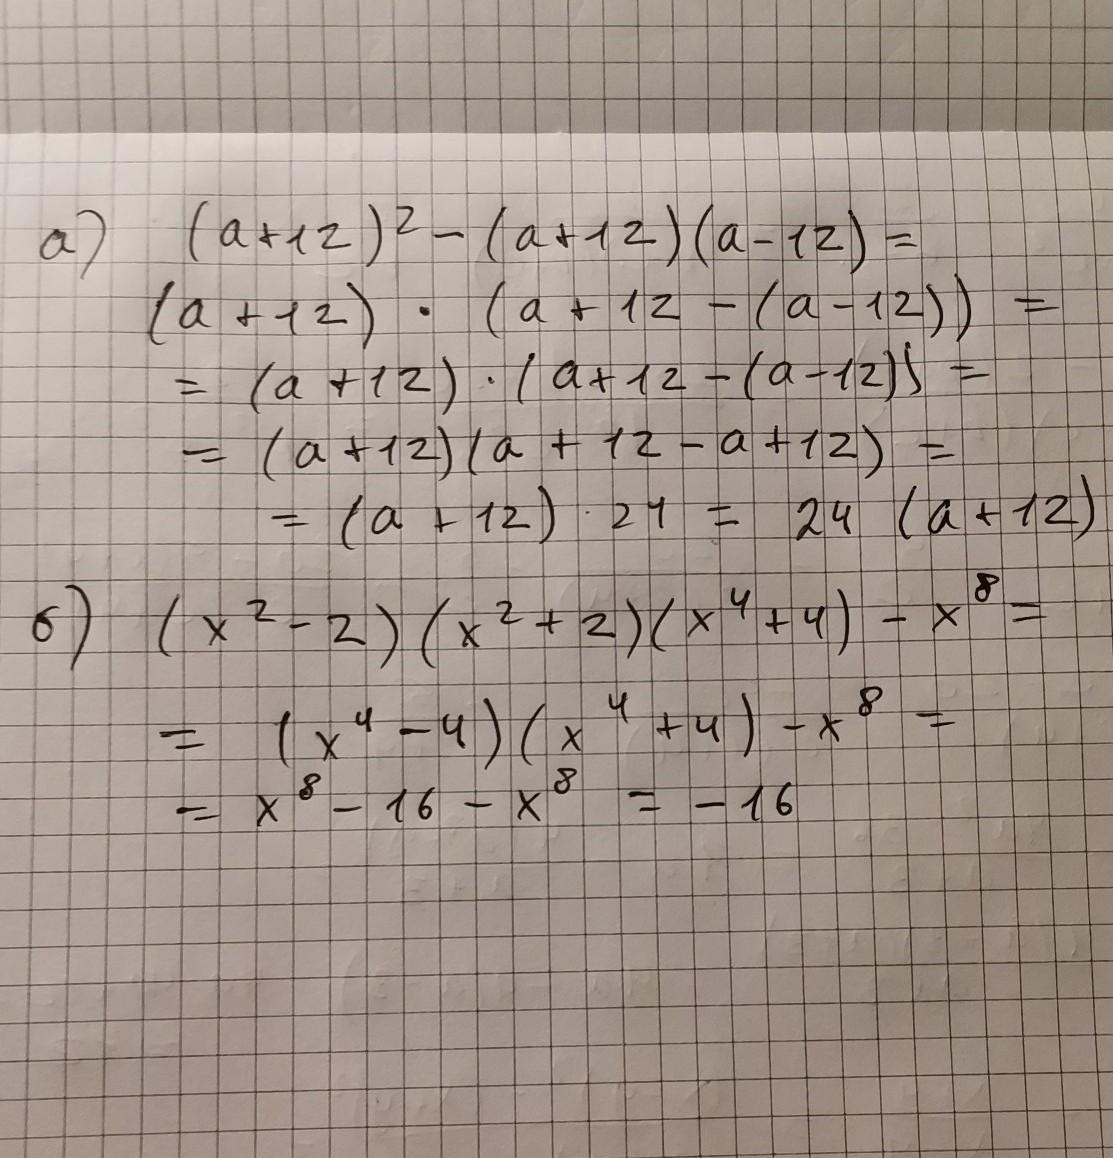 а) (a+12)² - (a+12)(a-12) =
(a+12) · (a + 12 - (a-12)) =
= (a+12) · (a+12-(a-12)) =
= (a+12)(a + 12 - a + 12) =
= (a + 12) · 24 = 24 (a+12)
б) (x² - 2)(x² + 2)(x⁴ + 4) - x⁸ =
= (x⁴ - 4)(x⁴ + 4) - x⁸ =
= x⁸ - 16 - x⁸ = -16